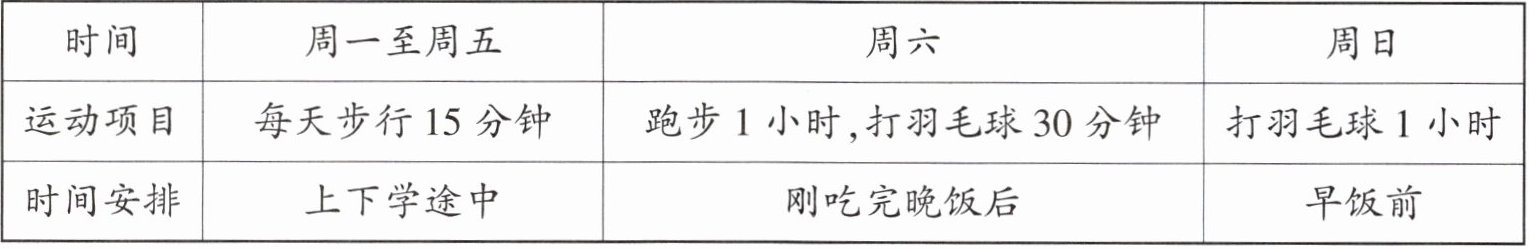 时间 周一至周五 周六 周日
运动项目 每天步行15分钟 跑步1小时,打羽毛球30分钟 打羽毛球1小时
时间安排 上下学途中 刚吃完晚饭后 早饭前